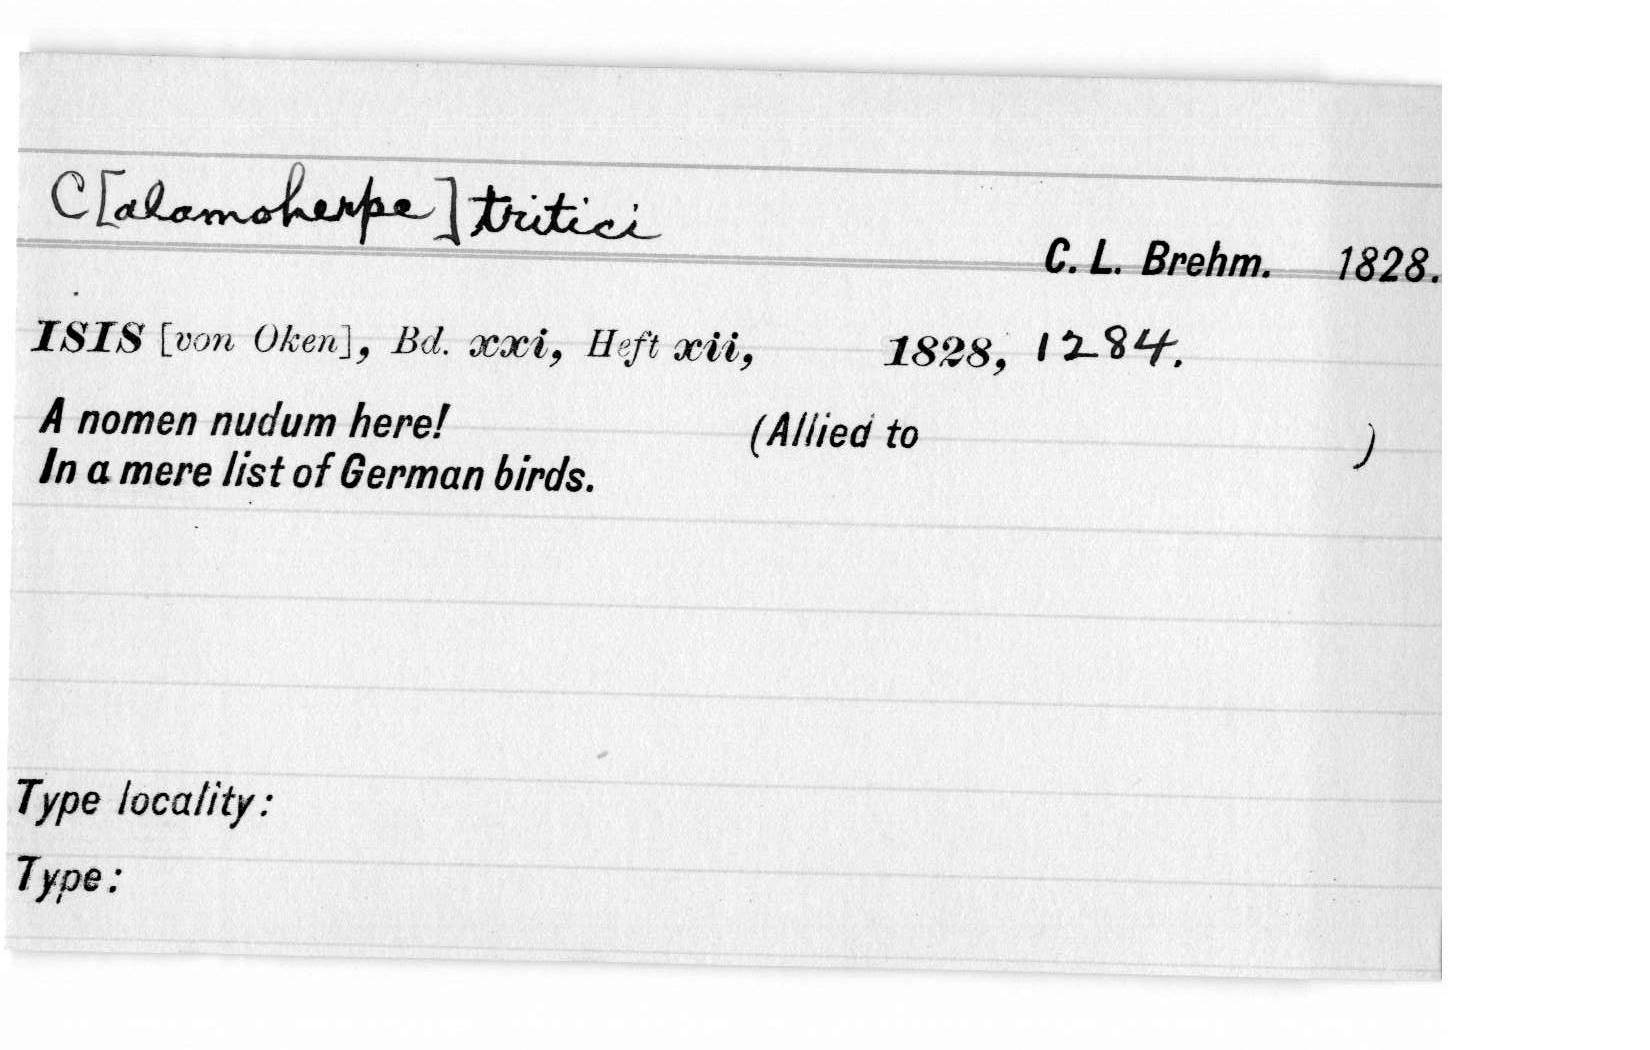 C[alamoherpe] tritici
C. L. Brehm. 1828.
ISIS [von Oken], Bd. xxi, Heft xii, 1828, 1284.
A nomen nudum here! (Allied to )
In a mere list of German birds.
Type locality:
Type: